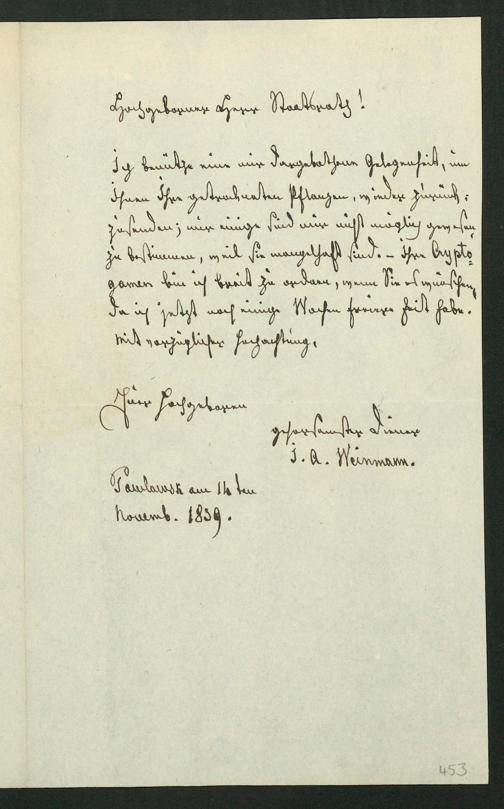 Hochgeborner Herr Staatsrath!
Ich benütze eine mir dargebothene Gelegenheit, um
Ihnen Ihre getrokneten Pflanzen, wieder zurück-
zusenden; nur einige sind mir nicht möglich gewesen
zu bestimmen, weil sie mangelhaft sind. – Ihre Crypto-
gamen bin ich breit zu ordnen, wenn Sie es wünschen,
da ich jetzt noch einige Wochen freiere Zeit habe.
Mit vorzüglicher Hochachtung,
Euer Hochgeboren
gehorsamster Diener
J. A. Weinmann.
Pawlowsk am 14 ten
Novemb. 1839.
453